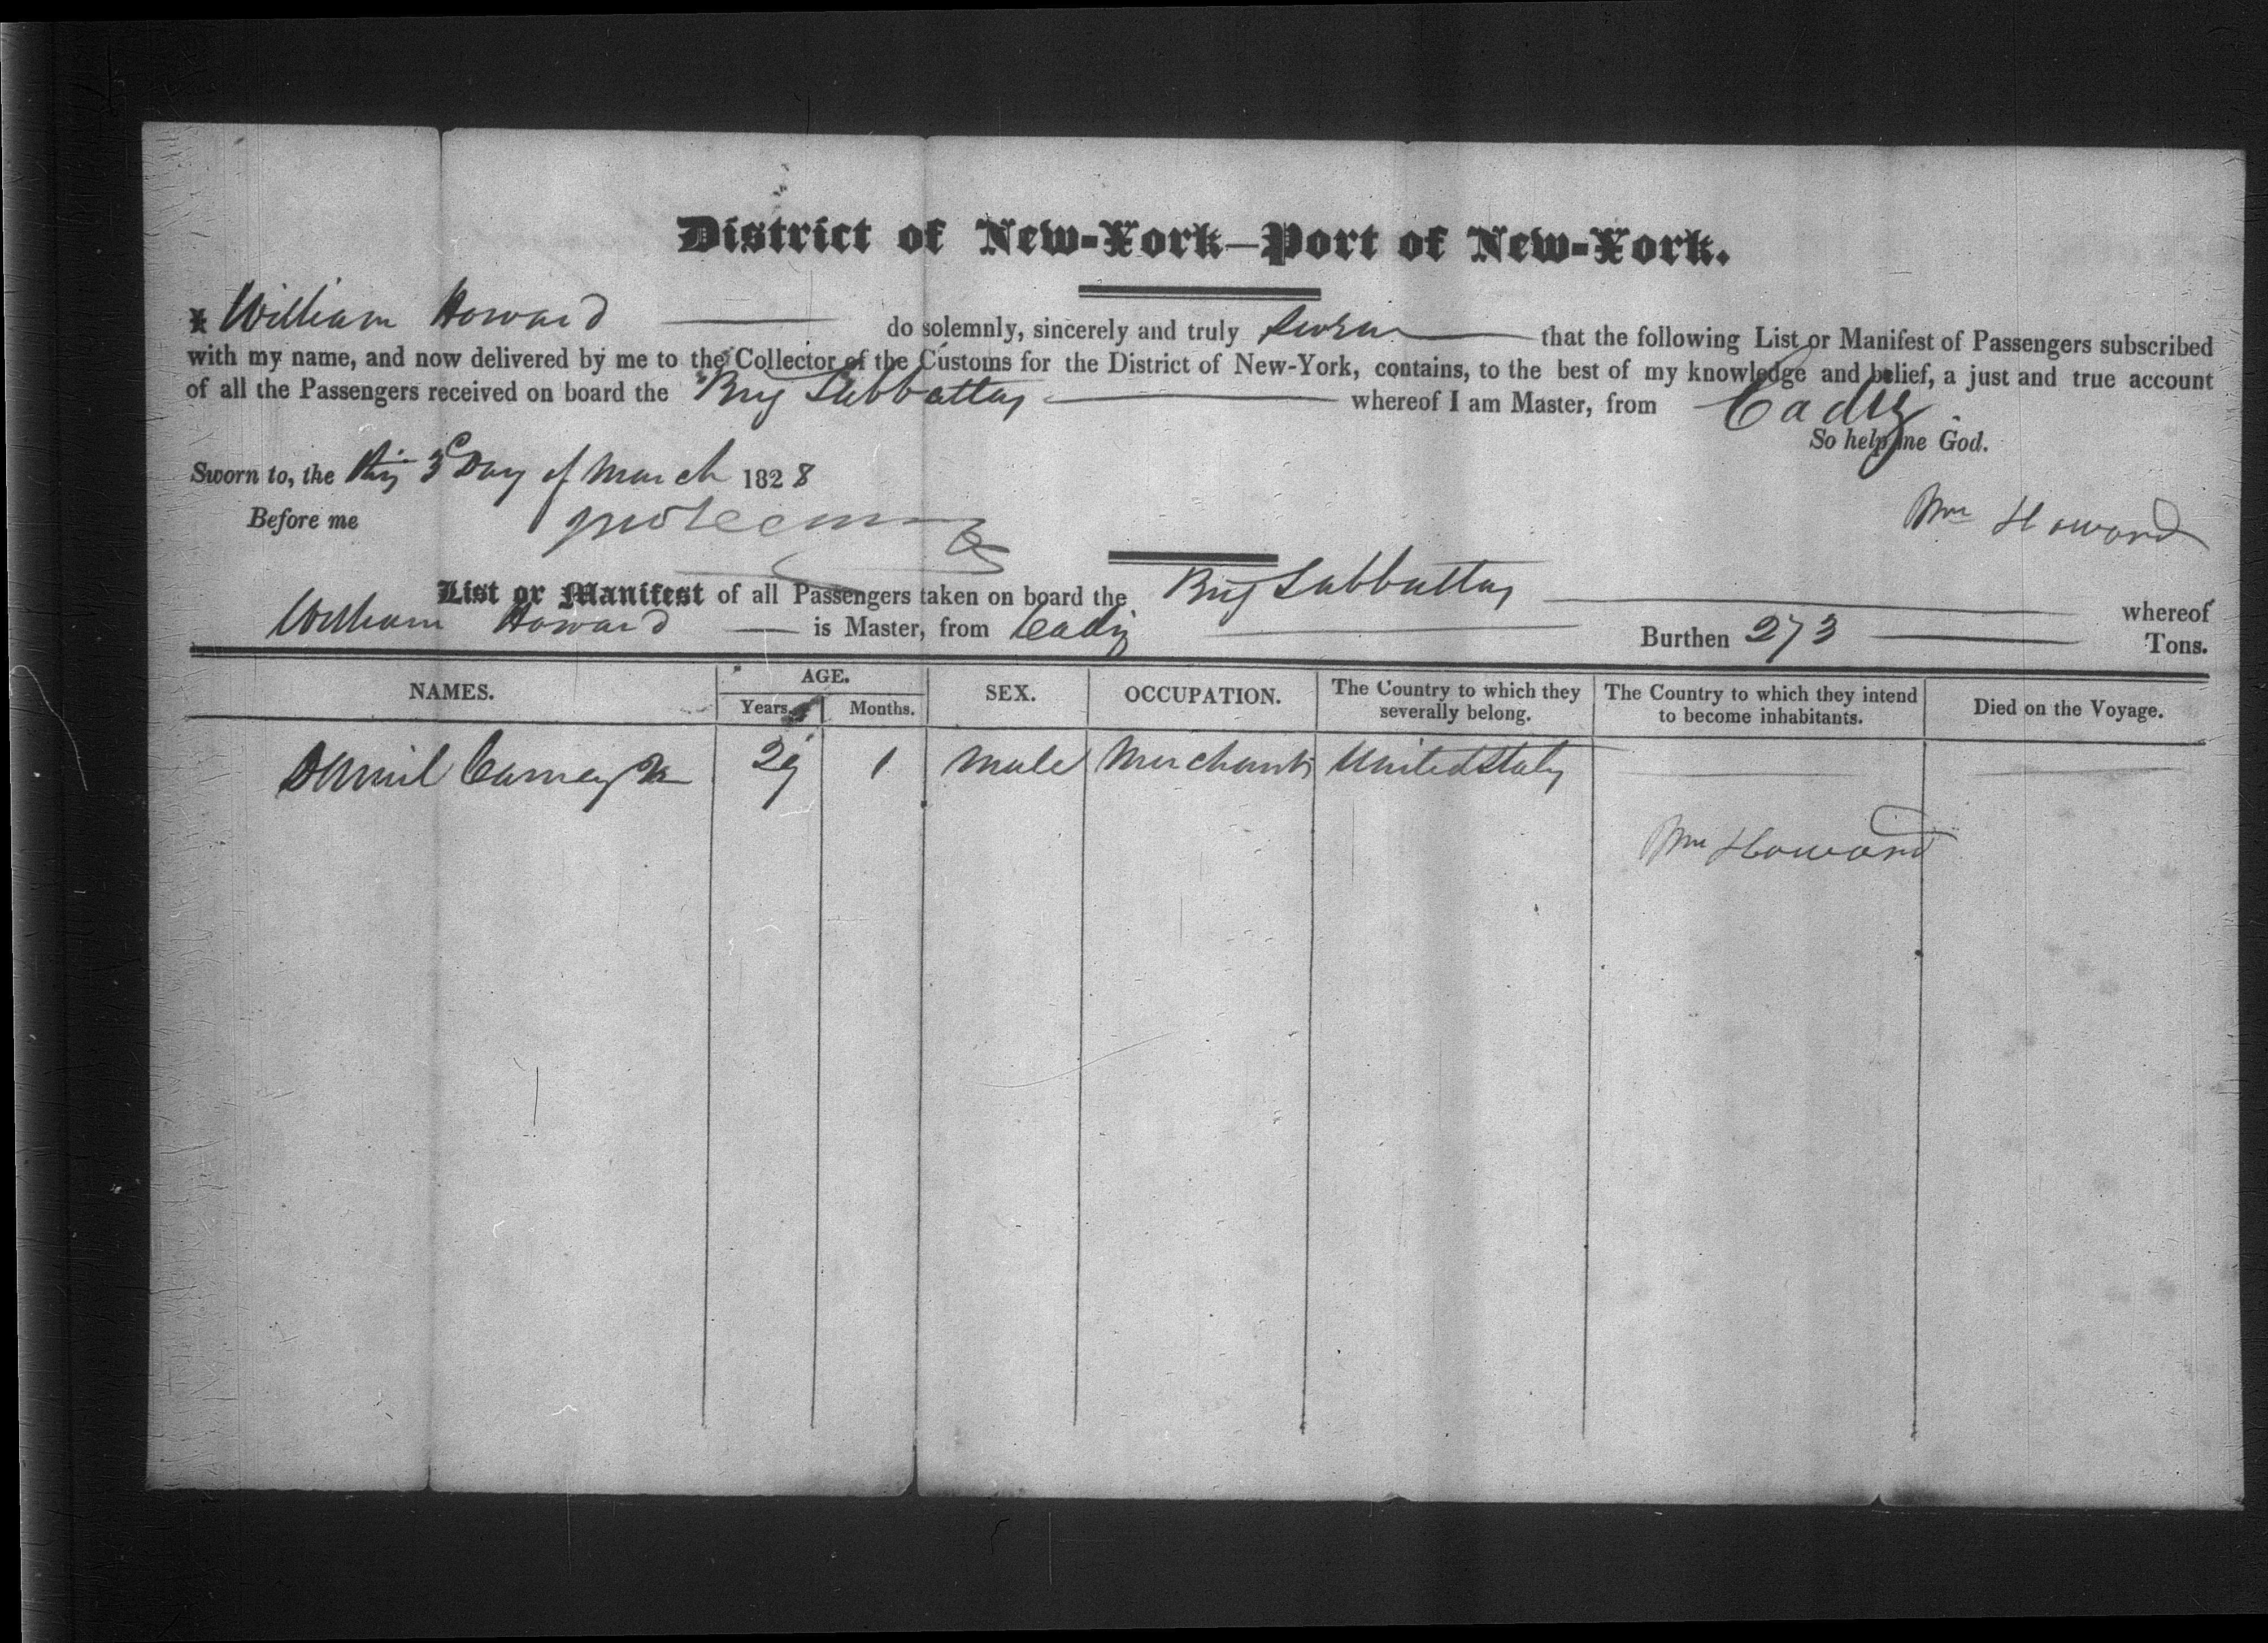 District of New-York—Port of New-York.
I William Howard do solemnly, sincerely and truly swear that the following List or Manifest of Passengers subscribed
with my name, and now delivered by me to the Collector of the Customs for the District of New-York, contains, to the best of my knowledge and belief, a just and true account
of all the Passengers received on board the Brig Sabbattas whereof I am Master, from Cadiz
So help me God.
Sworn to, the this 3d Day of March 1828
Before me
Wm Howard
List or Manifest of all Passengers taken on board the Brig Sabbattas whereof
William Howard is Master, from Cadiz Burthen 273 Tons.
NAMES. AGE. Years. Months. SEX. OCCUPATION. The Country to which they severally belong. The Country to which they intend to become inhabitants. Died on the Voyage.
Daniel Carney Jr 29 1 Male Merchant United States
Wm Howard